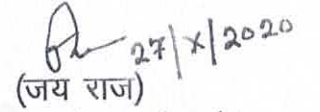 27/X/2020
(जय राज)